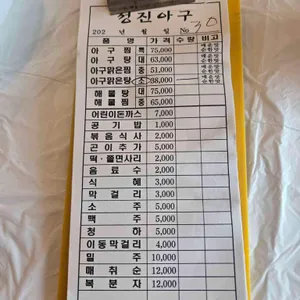 청진아구
202 년 월 일 No. 30
품 명 가격 수량 비고
아구찜 특 75,000
아구탕 대 63,000
아구맑은찜 중 51,000
아구맑은탕 소 38,000
해물탕 대 75,000
해물찜 중 65,000
어린이돈까스 7,000
공기밥 1,000
볶음식사 2,000
곤이추가 5,000
떡·쫄면사리 2,000
음료수 2,000
식혜 3,000
막걸리 3,000
소주 5,000
맥주 5,000
청하 5,000
이동막걸리 4,000
밀주 10,000
매취순 12,000
복분자 12,000